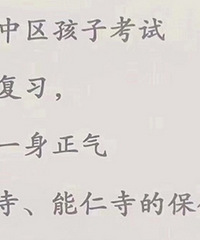 中区孩子考试
复习，
一身正气
寺、能仁寺的保